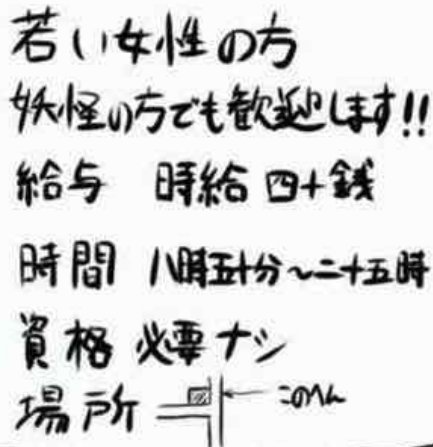 若い女性の方
妖怪の方でも歓迎します!!
給与 時給 四十銭
時間 八時五十分～二十五時
資格 必要ナシ
場所
このへん